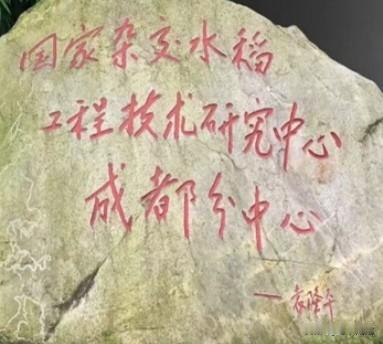 国家杂交水稻
工程技术研究中心
成都分中心
——袁隆平